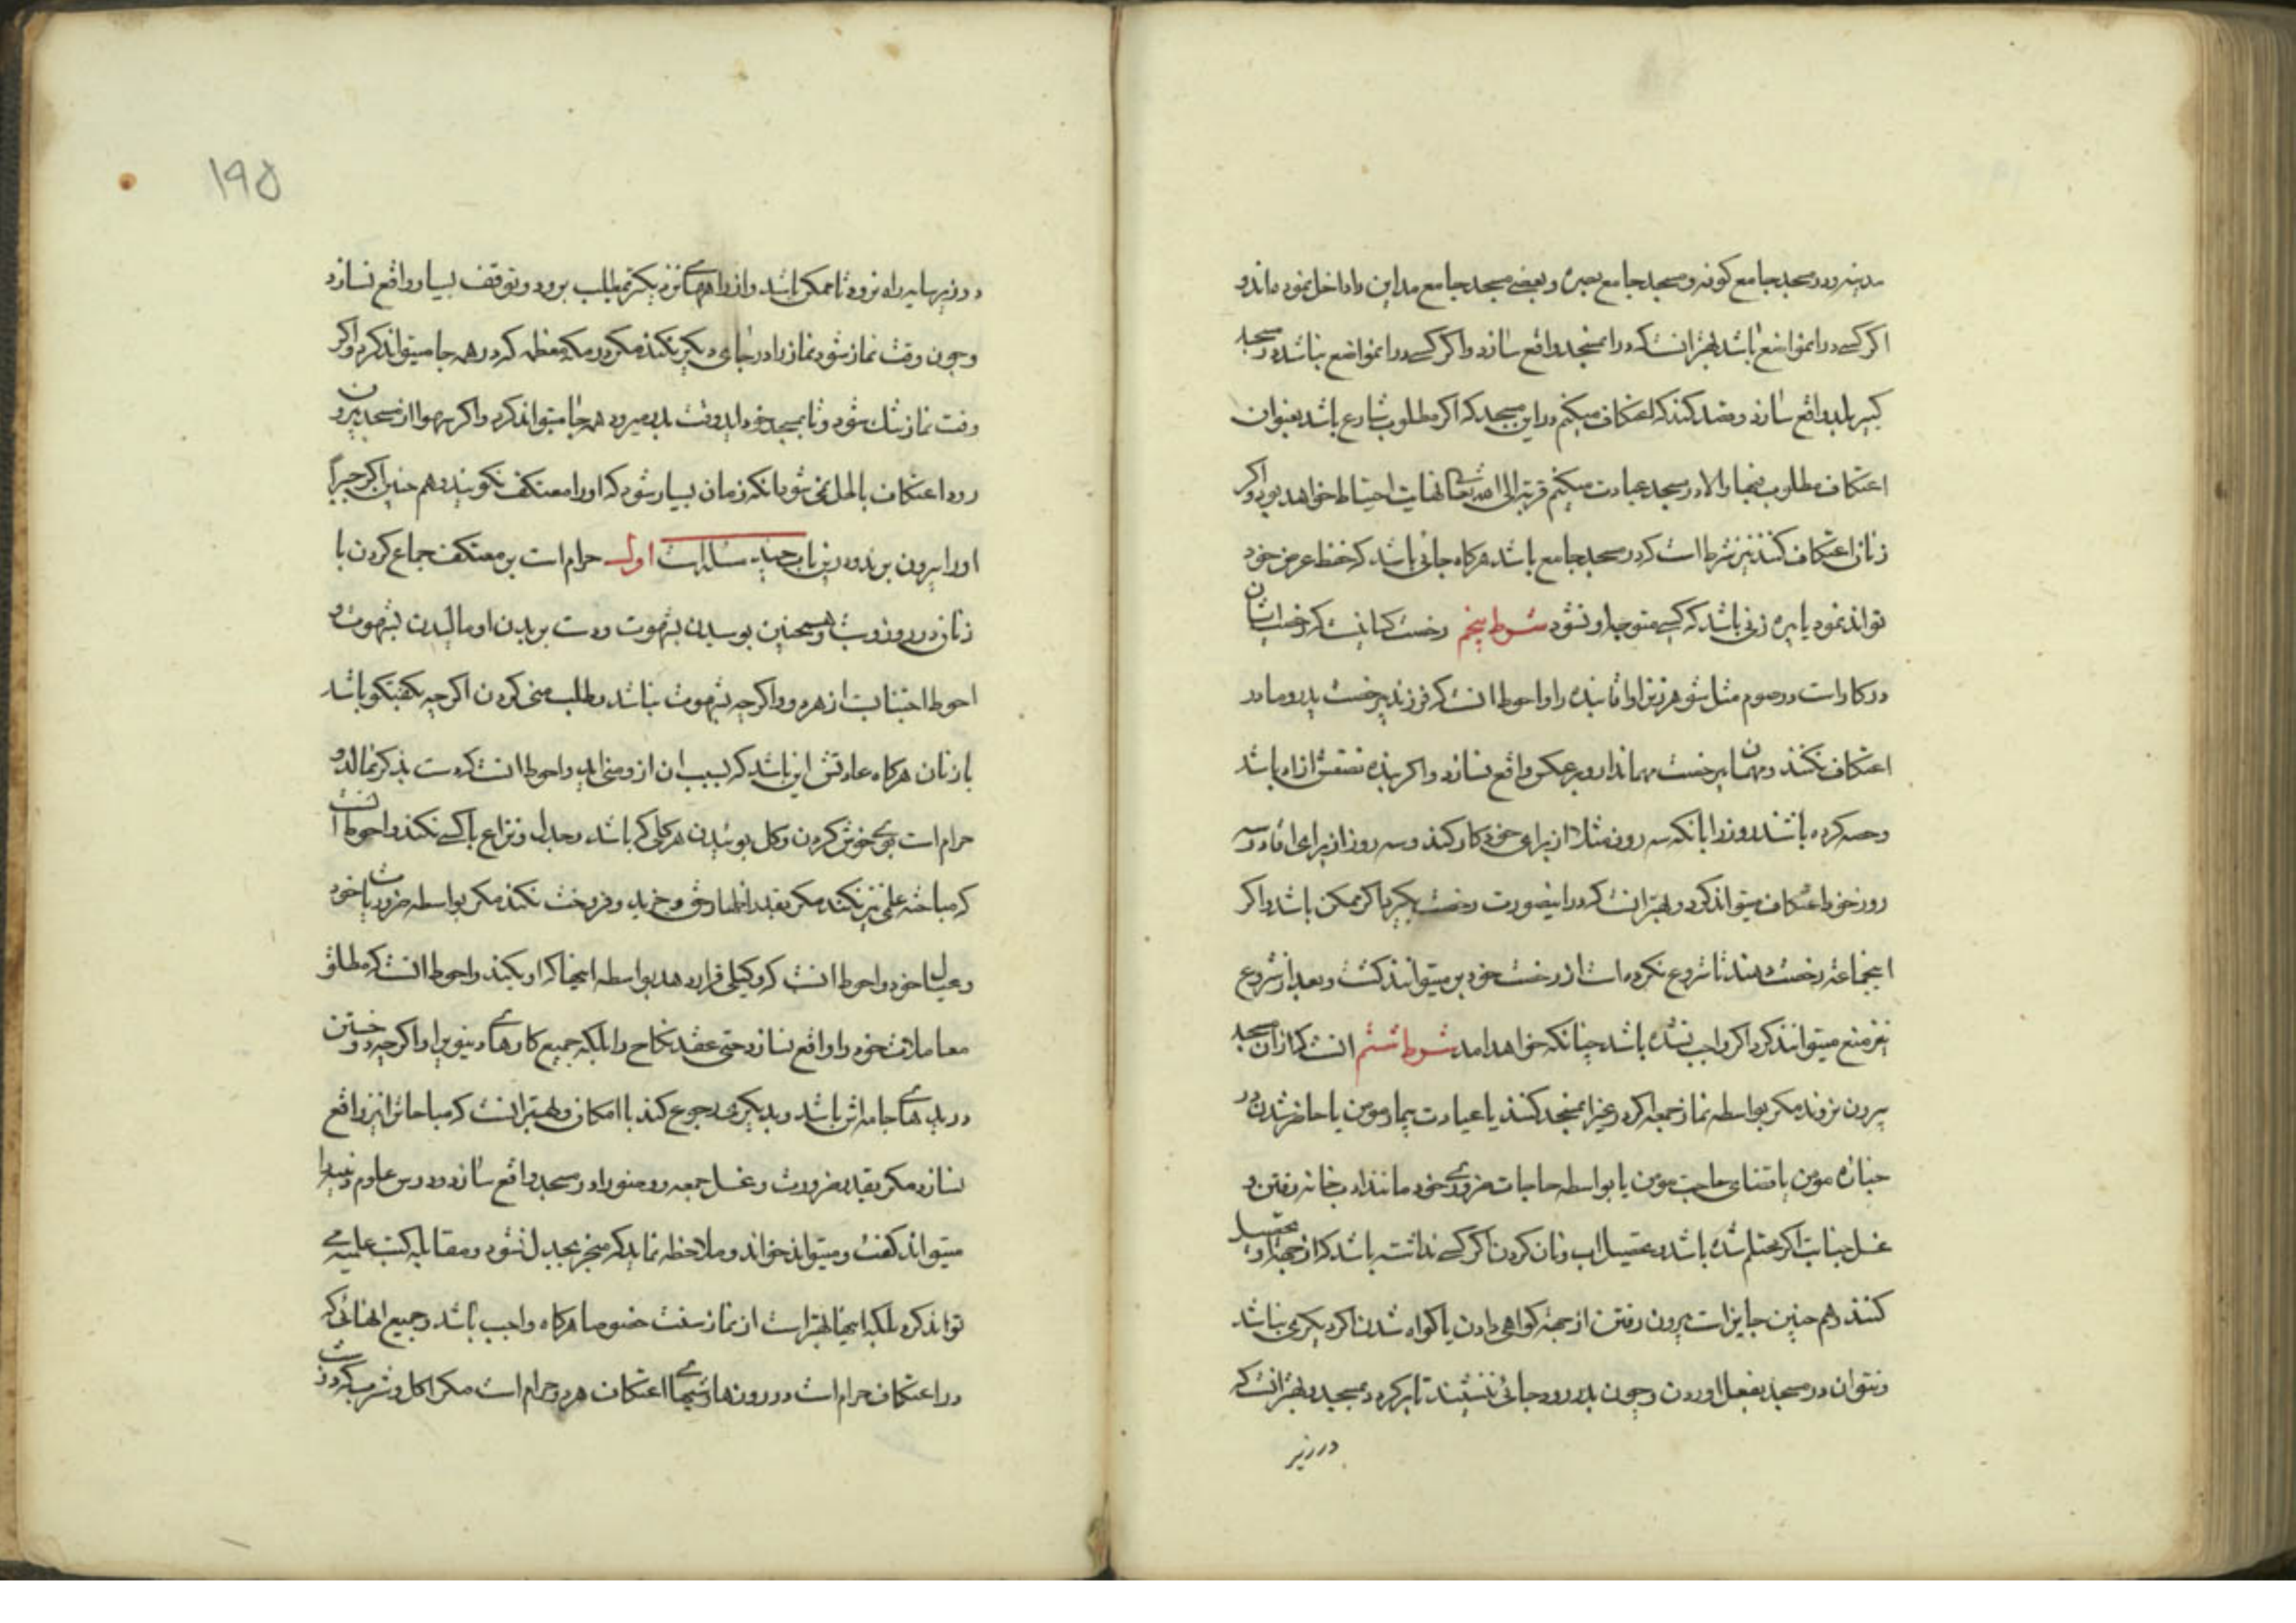 مدینه و در مسجد جامع کوفه و مسجد جامع بصره و بعضی مسجد جامع مداین را داخل نموده‌اند و
اکر کسی در انمواضع باشد بهتر انست که در انمسجد واقع سازد و اکر کسی در انمواضع نباشد در مسجد
کبیر بلد واقع سازد و قصد کند که اعتکاف میکنم در این مسجد که اکر مطلوب شارع باشد بعنوان
اعتکاف مطلوب فبها والا در مسجد عبادت میکنم قربة الی الله تعالی نهایت احتیاط خواهد بود و اکر
زنان اعتکاف کنند نیز شرط است که در مسجد جامع باشد هرکاه جائی باشد که حفظ عرض خود
تواند نمود یا پیره زنی باشد که کسی متوجه او نشود شرط پنجم رخصت کسانیست که رخصت ایشان
در کار است در صوم مثل شوهر زنرا و اقا بنده را و احوط انست که فرزند بیرخصت پدر و مادر
اعتکاف نکنند و مهمان بیرخصت مهماندار و برعکس واقع نسازد و اکر بنده نصفش ازاد باشد
و حصه کرده باشند روز را بانکه سه روز مثلا از برای خود کار کند و سه روز از برای اقا در سه
روز خود اعتکاف میتواند کرد و بهتر انست که در اینصورت رخصت بکیرد اکر ممکن باشد و اکر
اینجماعة رخصت دهند تا شروع نکرده است از رخصت خود بر میتوانند کشت و بعد از شروع
نیز منع میتوانند کرد اکر واجب نشده باشد چنانکه خواهد امد شرط ششم انست که از ان مسجد
بیرون نروند مکر بواسطه نماز جمعه اکر در غیر انمسجد کنند یا عیادت بیمار مومن یا حاضر شدن در
جنازه مومن یا قضای حاجت مومن یا بواسطه حاجات ضروری خود مانند ادبخانه رفتن و
غسل جنابت اکر محتلم شده باشد و تحصیل اب و نان کردن اکر کسی نداشته باشد که از جهة او تحصیل
کنند و هم چنین جایز است بیرون رفتن از جهة کواهی دادن یا کواه شدن اکر دیکری نباشد
و نتوان در مسجد بفعل اوردن و چون بدر رود جائی ننشیند تا برکردد بمسجد و بهتر انست که
در زیر
در زیر سایه راه نرود تا ممکن باشد و از راههای نزدیکتر بمطلب برود و توقف بسیار واقع نسازد
و چون وقت نماز شود نماز را در جای دیکر نکند مکر در مکه معظمه که در همه جا میتواند کرد و اکر
وقت نماز تنک شود و تا بمسجد خود اید وقت بدر میرود همه جا میتواند کرد و اکر سهوا از مسجد بیرون
رود اعتکاف باطل نمی شود مکر انکه زمان بسیار شود که او را معتکف نکویند و هم چنین اکر جبرا
او را بیرون برند و در این باب چند مسئله است اول حرام است بر معتکف جماع کردن با
زنان در روز و شب و همچنین بوسیدن بشهوت و دست بر بدن او مالیدن بشهوت و
احوط اجتنابست از هر دو و اکرچه بشهوت نباشد و طلب منی کردن اکرچه بکفتکو باشد
با زنان هرکاه عادتش این باشد که بسبب ان از او منی اید و احوط انست که دست بذکر نمالد و
حرام است بوی خوش کردن و کل بوئیدن هر کلی که باشد و جدل و نزاع با کسی نکند و احوط انست
که مباحثه علمی نیز نکند مکر بقصد اظهار حق و خرید و فروخت نکند مکر بواسطه ضرورت خود
و عیال خود و احوط انست که وکیلی قرار دهد بواسطه اینها که او بکند و احوط انست که مطلق
معاملات خود را واقع نسازد حتی عقد نکاح را بلکه جمیع کارهای دنیوی را و اکرچه دوختن
دریدهای جامه اش باشد و بدیکری رجوع کند با امکان و بهتر انست که مباحات را نیز واقع
نسازد مکر بقدر ضرورت و غسل جمعه و وضو را در مسجد واقع سازد و درس علوم دینیه را
میتواند کفت و میتواند خواند و ملاحظه نماید که منجر بجدل نشود و مقابله کتب علمیه می
تواند کرد بلکه اینها بهتر است از نماز سنت خصوصا هرکاه واجب باشد و جمیع انهائی که
در اعتکاف حرام است در روزها و شبهای اعتکاف هر دو حرام است مکر اکل و شرب که در
۱۹۵